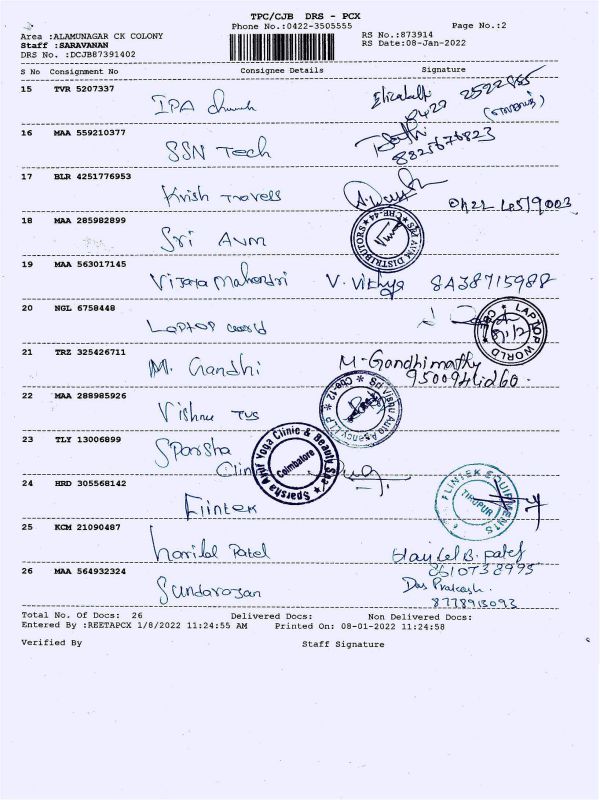 TPC/CJB DRS - PCX
Phone No.:0422-3505555 Page No.:2
Area :ALAMUNAGAR CK COLONY RS No.:873914
Staff :SARAVANAN RS Date:08-Jan-2022
DRS No. :DCJB87391402
S No Consignment No Consignee Details Signature
15 TVR 5207337
IPA church Elizabeth
0422 2522955
16 MAA 559210377
SSN Tech
8825676823
17 BLR 4251776953
Krish Travels
18 MAA 285982899
Sri AVM
SRI AVM DISTRIBUTORS ★ CBE-44 ★
19 MAA 563017145
Vijaya Mahendri V. Vithya 8438715988
20 NGL 6758448
Laptop world
LAPTOP WORLD ★ CBE ★
21 TRZ 325426711
M. Gandhi M-Gandhimathy
22 MAA 288985926
Vishnu TVS
Sri Vishnu Auto Agency LLP ★ Cbe-12 ★
23 TLY 13006899
Sparsha
Clinic
Sparsha Ayur Yoga Clinic & Beauty Spa ★ Coimbatore
24 HRD 305568142
Flintek
FLINTEK EQUIPMENTS TIRUPUR
25 KCM 21090487
Harilal Patel Harilal B. patel
8610738995
26 MAA 564932324
Sundarajan Das Prakash.
8778913093
Total No. Of Docs: 26 Delivered Docs: Non Delivered Docs:
Entered By :REETAPCX 1/8/2022 11:24:55 AM Printed On: 08-01-2022 11:24:58
Verified By Staff Signature